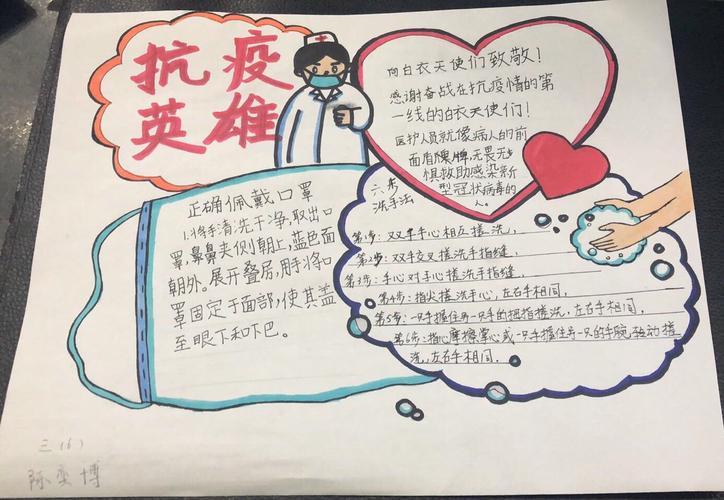 抗疫
英雄
向白衣天使们致敬！
感谢奋战在抗疫情的第
一线的白衣天使们！
医护人员就像病人的前
面盾牌，无畏无
惧救助感染新
型冠状病毒的
人。
正确佩戴口罩
1.将手清洗干净，取出口
罩，鼻夹侧朝上，蓝色面
朝外。展开叠层，用手将口
罩固定于面部，使其盖
至眼下和下巴。
六步
洗手法
第1步：双手手心相互搓洗，
第2步：双手交叉搓洗手指缝，
第3步：手心对手心搓洗手指缝，
第4步：指尖搓洗手心，左右手相同，
第5步：一只手握住另一只手的拇指搓洗，左右手相同，
第6步：指心摩擦掌心或一只手握住另一只的手腕转动搓
洗，左右手相同，
三（6）
博